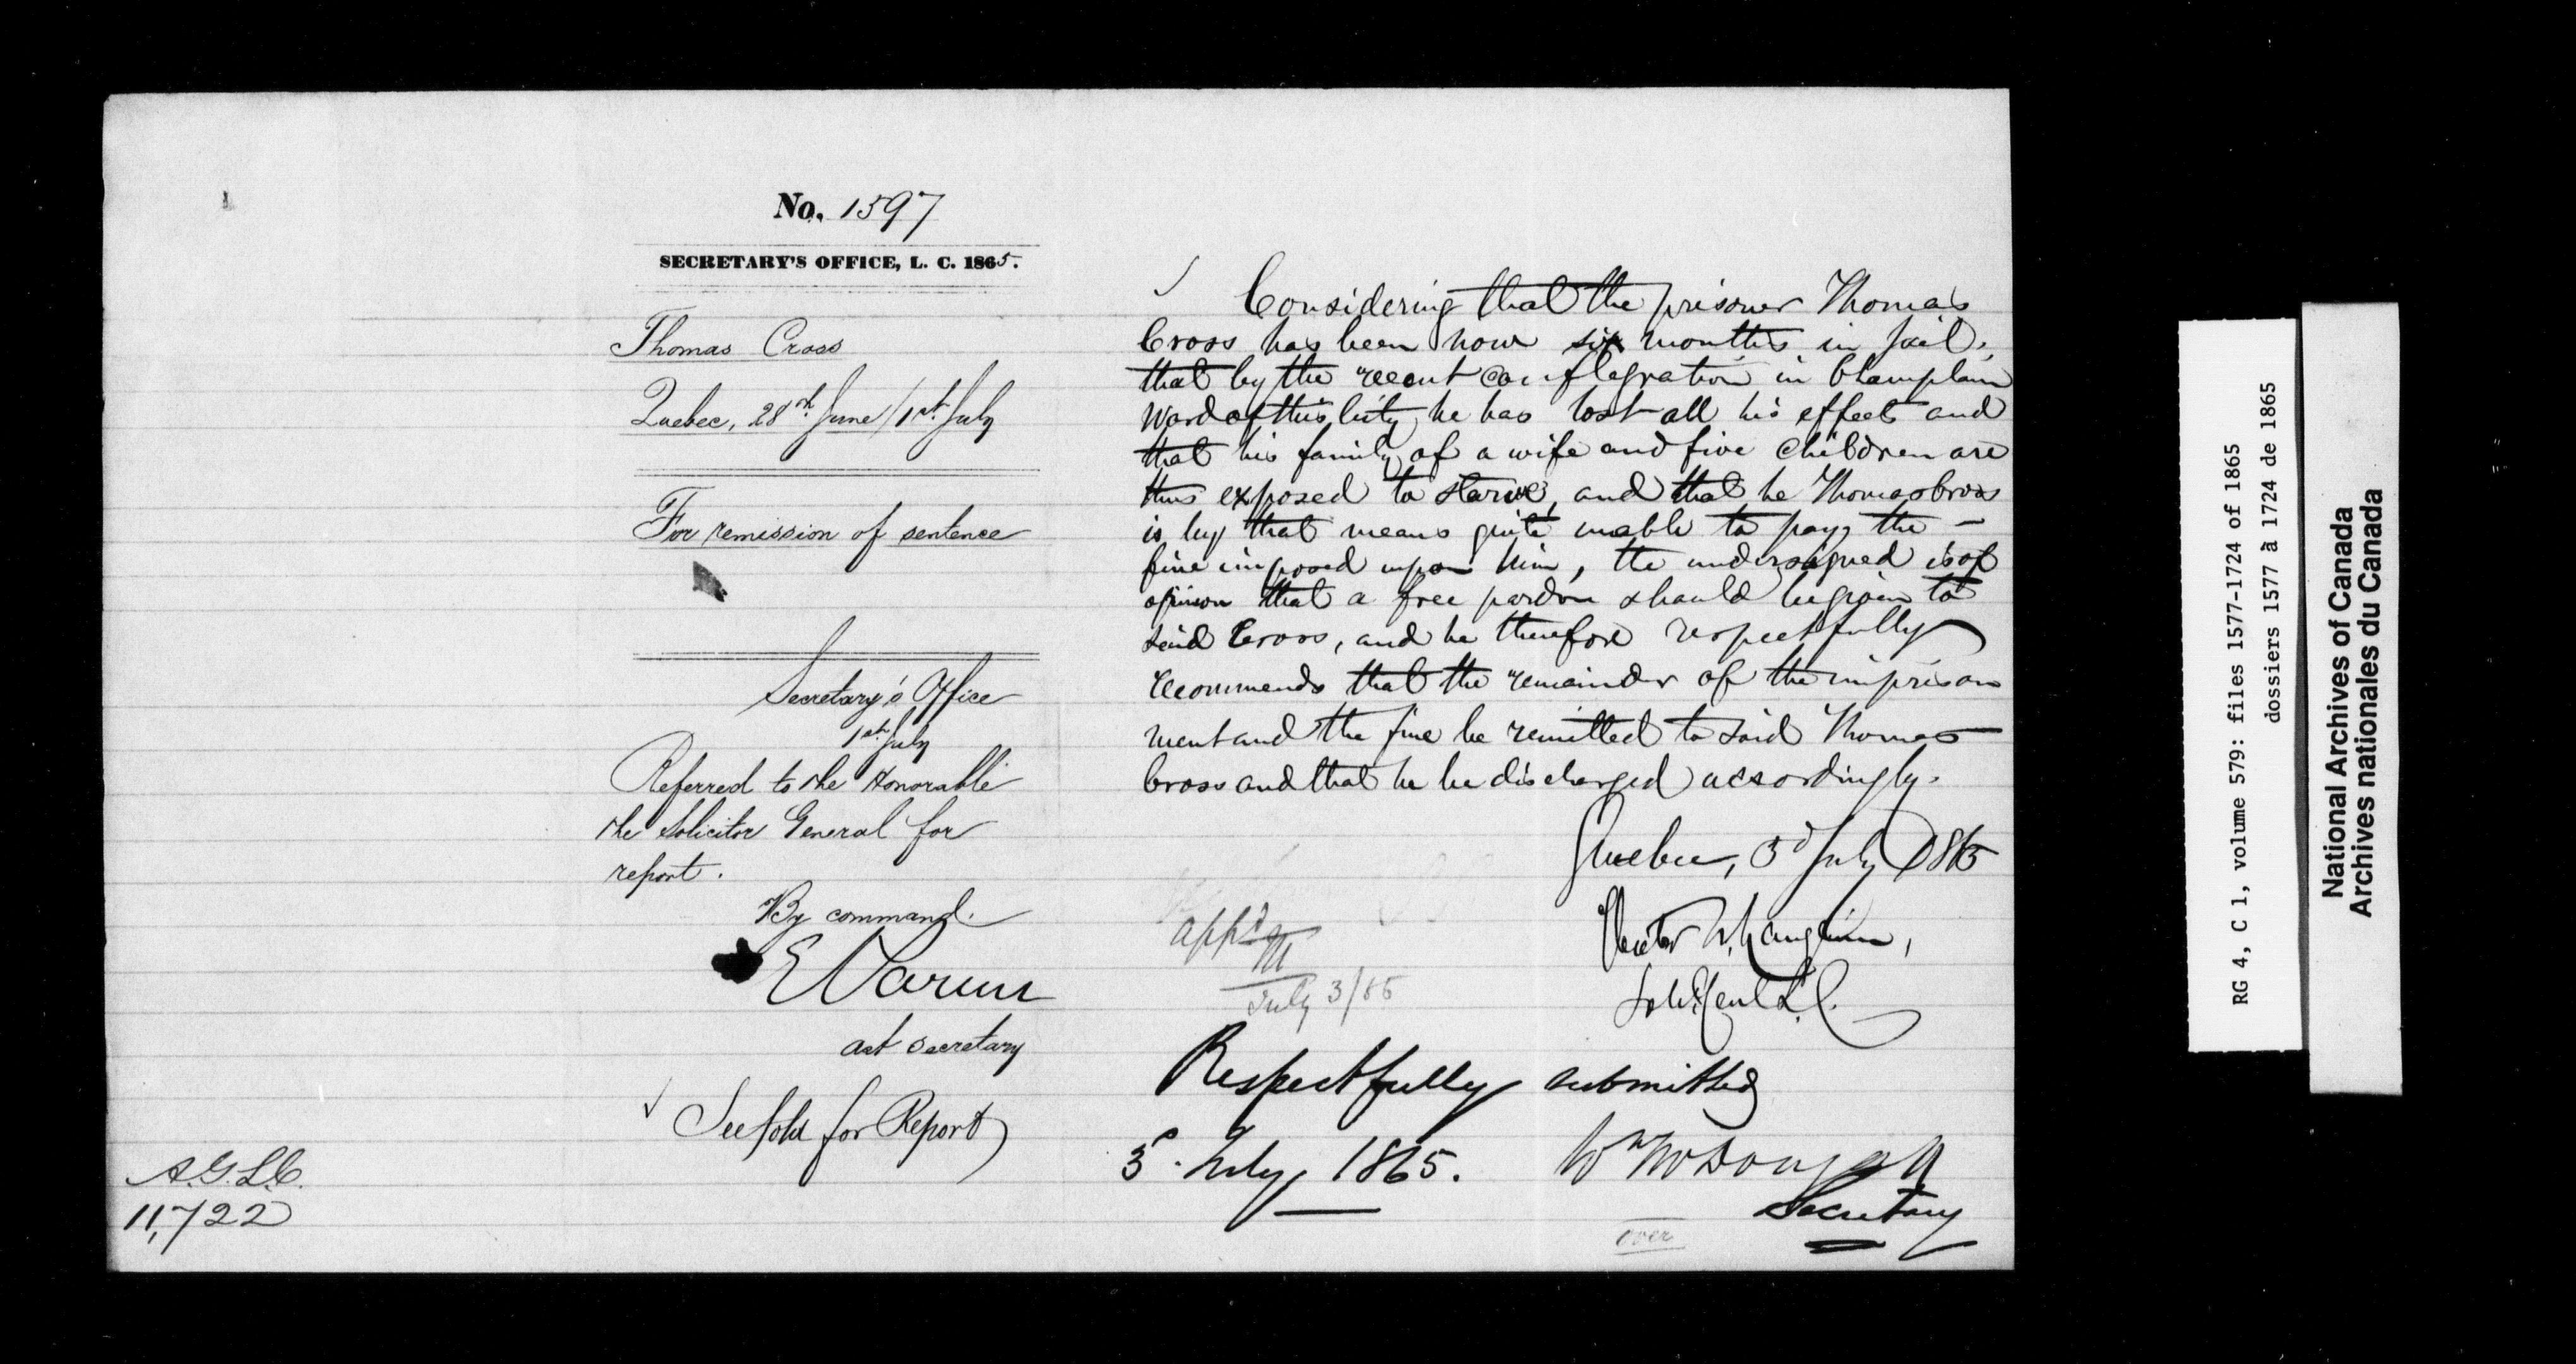 No. 1597
SECRETARY'S OFFICE, L. C. 1865.
Thomas Cross
Quebec, 28th June/1st July
For remission of sentence
Secretary's Office
1st July
Referred to the Honorable
the Solicitor General for
report.
By command.
E Parent
ast secretary
✓ See fold for Report
A.G.L.C.
11,722
✓ Considering that the prisoner Thomas
Cross has been now six months in jail,
that by the recent conflagration in Champlain
Ward of this City he has lost all his effects and
that his family of a wife and five children are
thus exposed to starve, and that he Thomas Cross
is by that means quite unable to pay the —
fine imposed upon him, the undersigned is of
opinion that a free pardon should be given to
said Cross, and he therefore respectfully
recommends that the remainder of the imprison
ment and the fine be remitted to said Thomas
Cross and that he be discharged accordingly.
Quebec, 3d July 1865
Hector L. Langevin,
Sol. Genl L.C.
appd
M
July 3/65
Respectfully submitted
3d July 1865.
Wm McDougall
Secretary
over
RG 4, C 1, volume 579: files 1577-1724 of 1865
dossiers 1577 à 1724 de 1865
National Archives of Canada
Archives nationales du Canada